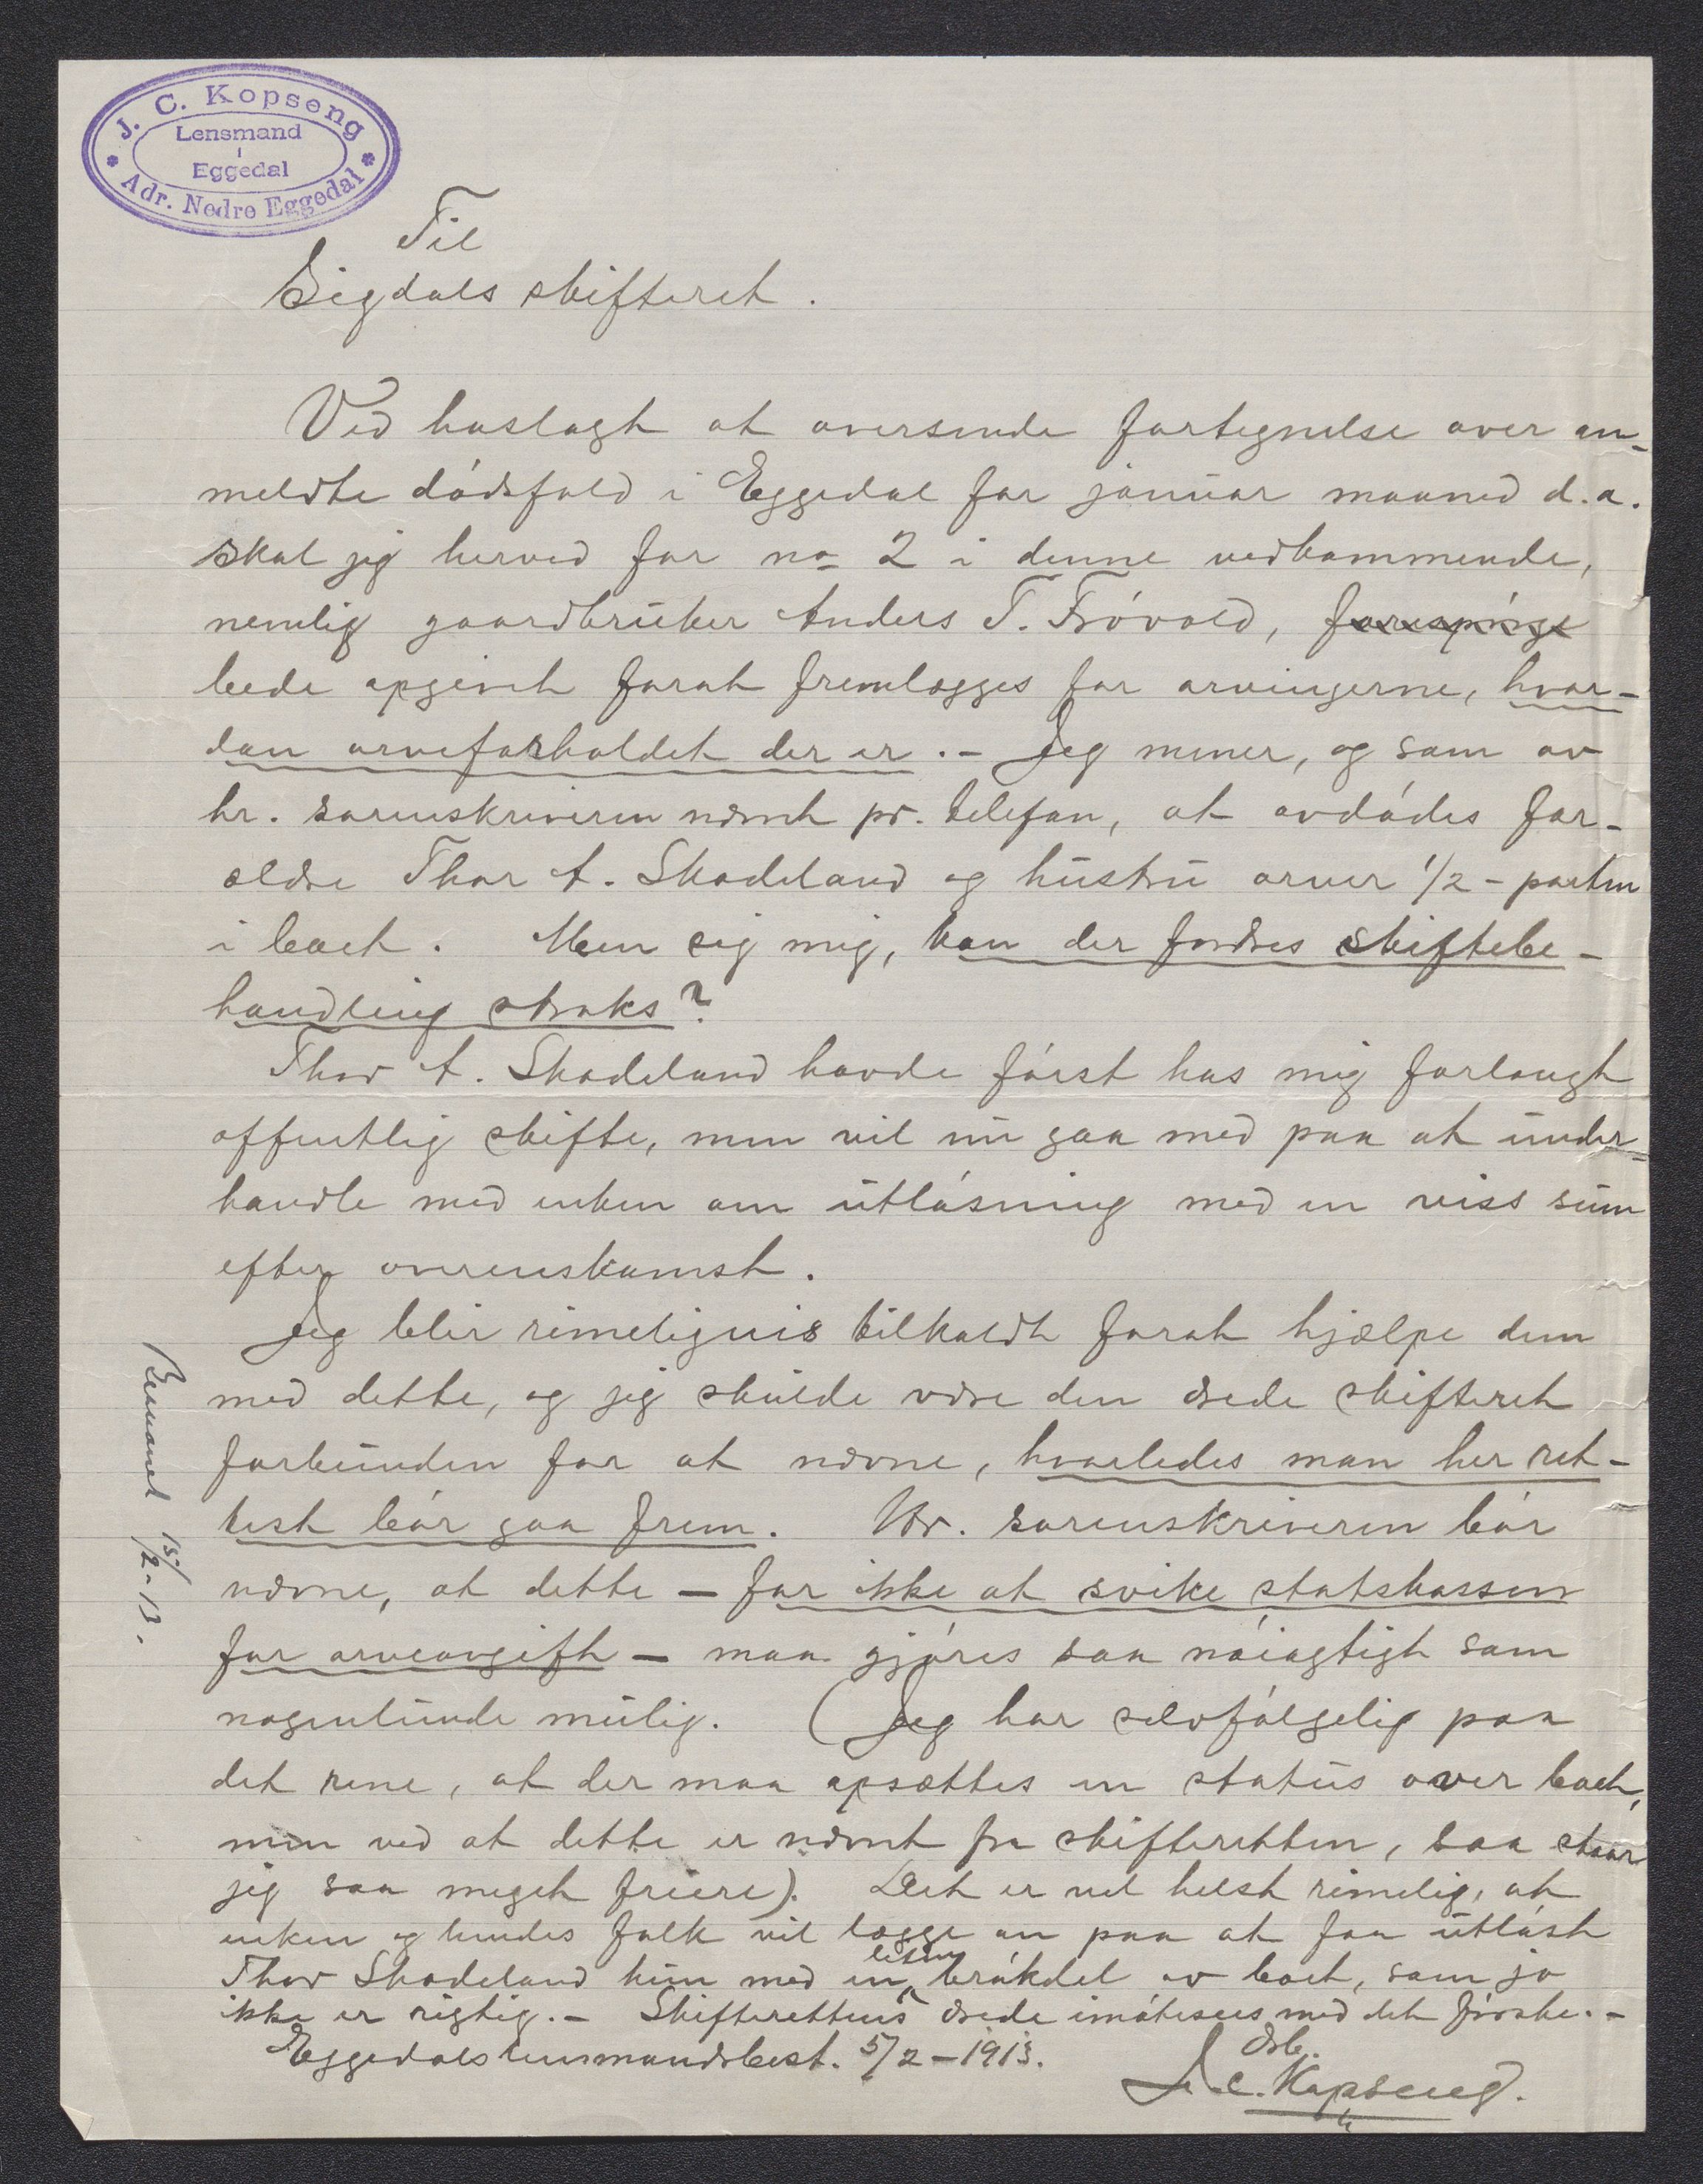 J. C. Kopseng
Lensmand
i
Eggedal
Adr. Nedre Eggedal
Til
Sigdals skifteret.
Ved hoslagt at oversende fortegnelse over an-
meldte dødsfald i Eggedal for januar maaned d.a.
skal jeg herved for no 2 i denne vedkommende,
nemlig gaardbruker Anders T. Frøvold, forespørge
bede opgivet forat fremlægges for arvingerne, hvor-
dan arveforholdet der er. - Jeg mener, og som av
hr. sorenskriveren nævnt pr. telefon, at avdødes for-
ældre Thor A. Skadeland og hustru arver 1/2-parten
i boet. Men sig mig, kan der fordres skiftebe-
handling straks?
Thor A. Skadeland havde først hos mig forlangt
offentlig skifte, men vil nu gaa med paa at under-
handle med enken om utløsning med en viss sum
efter overenskomst.
Jeg blir rimeligvis tilkaldt forat hjælpe dem
med dette, og jeg skulde være den ærede skifteret
forbunden for at nævne, hvorledes man her ret-
test bør gaa frem. Hr. sorenskriveren bør
nævne, at dette - for ikke at svike statskassen
for arveavgift - maa gjøres saa nøiagtigt som
nogenlunde mulig. (Jeg har selvfølgelig paa
det rene, at der maa opsættes en status over boet,
men ved at dette er nævnt fra skifteretten, saa staar
jeg saa meget friere). Det er vel helst rimelig, at
enken og hendes folk vil lægge an paa at faa utløst
Thor Skadeland kun med en liten brøkdel av boet, som jo
ikke er rigtig. - Skifterettens ærede imøtesees med det første. -
Eggedals lensmandsbest. 5/2-1913.
Ærb.
J. C. Kopseng.
Besvaret 15/2-13.